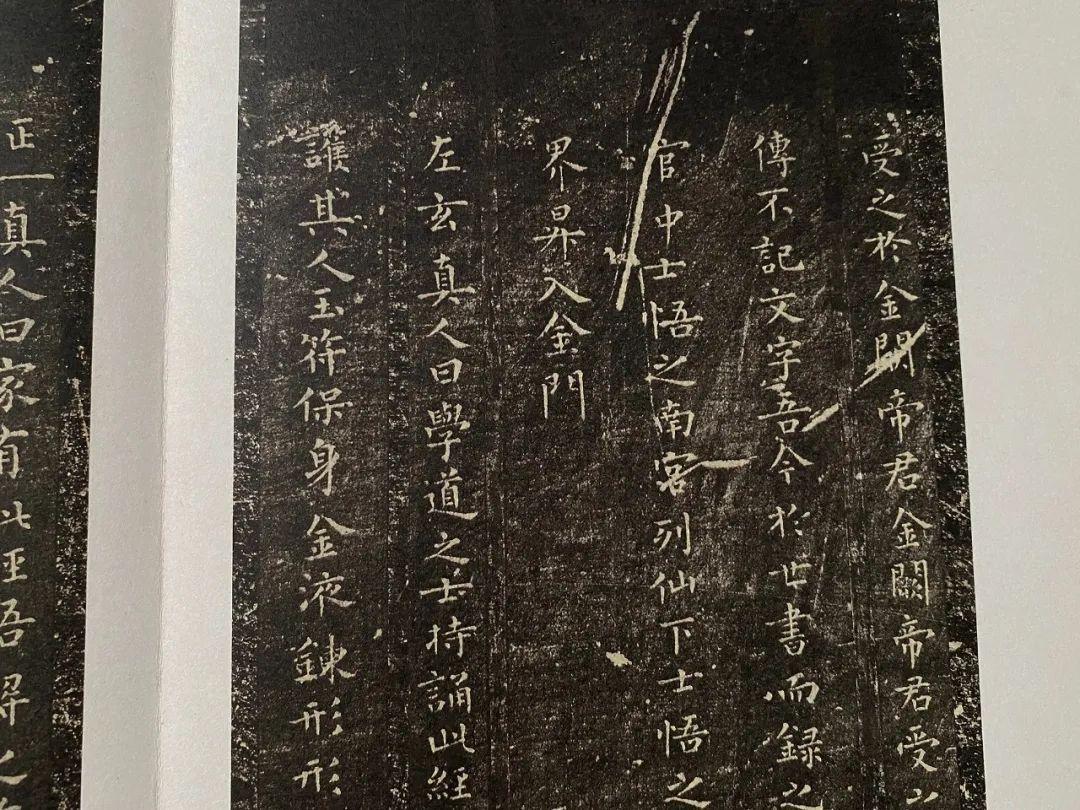 受之於金闕帝君金闕帝君受
傳不記文字吾今於世書而録之
官中士悟之南宮列仙下士悟之
界昇入金門
左玄真人曰學道之士持誦此經
護其人玉符保身金液鍊形形
正一真人曰家有此經吾解之